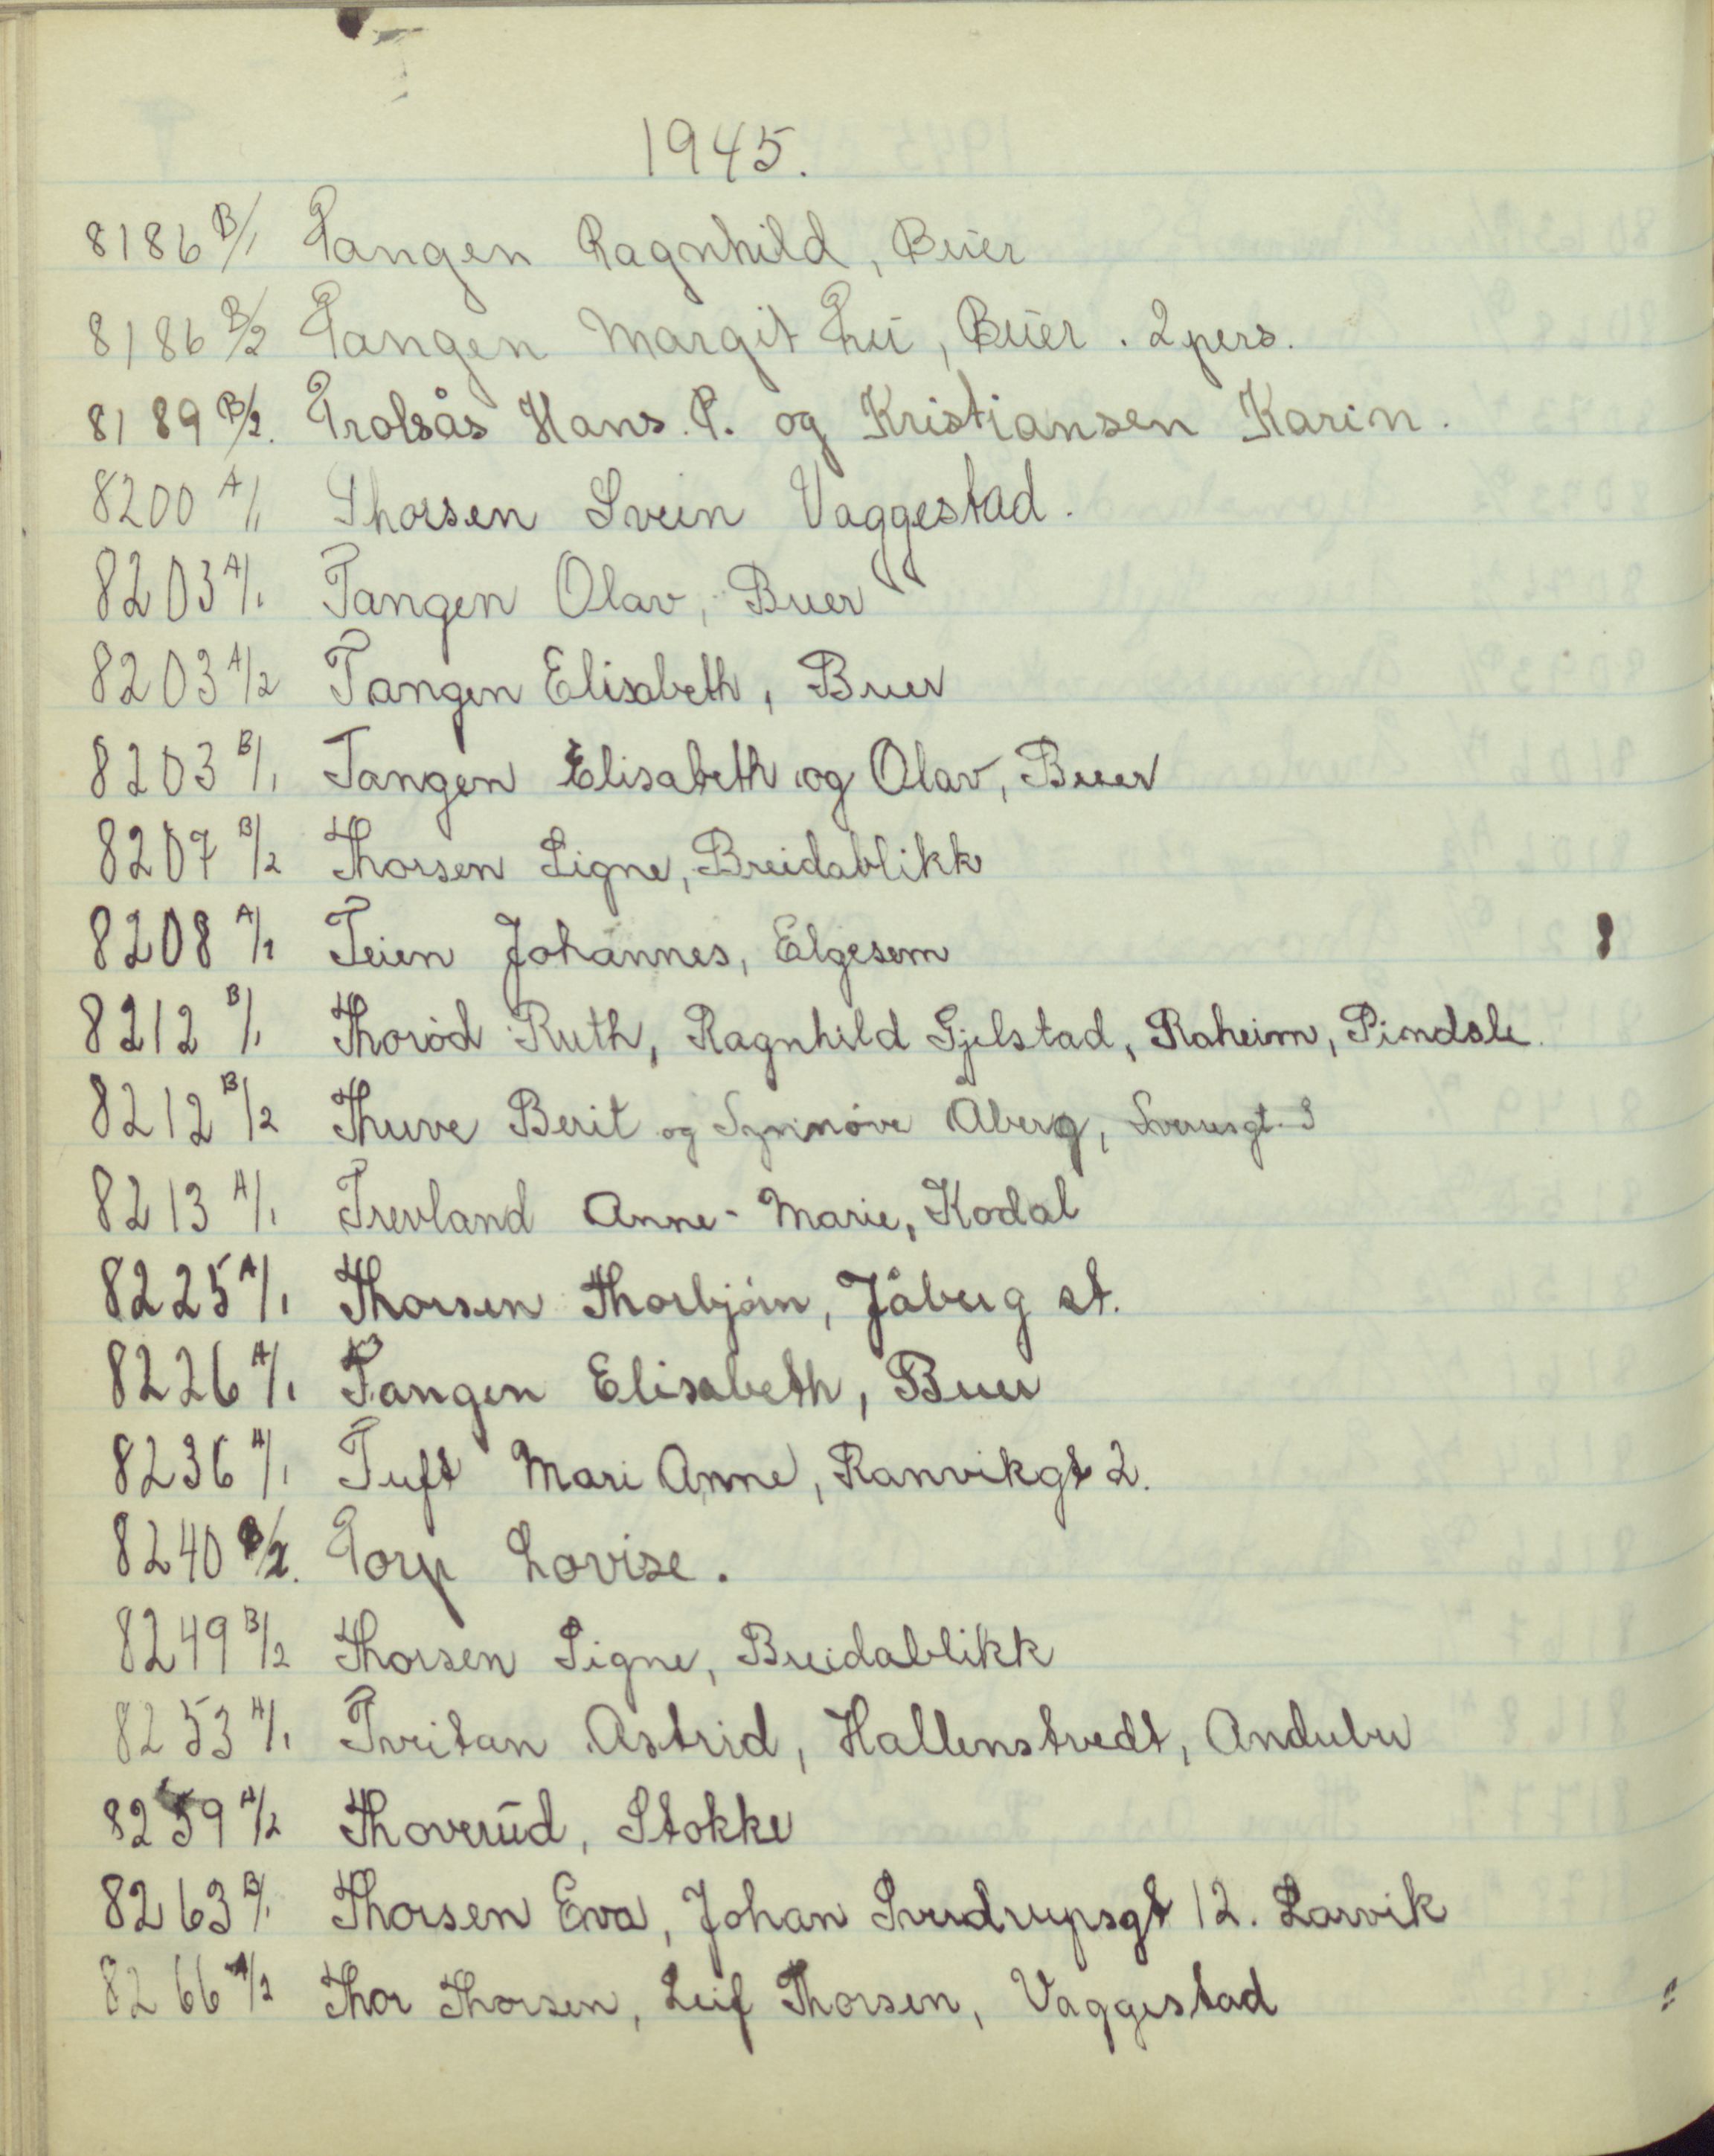 1945.
8186 B/1 Tangen Ragnhild, Buer
8186 B/2 Tangen Margit Lu, Buer. 2 pers.
8189 B/2. Trolsås Hans. P. og Kristiansen Karin.
8200 A/1 Thorsen Svein Vaggestad.
8203 A/1 Tangen Olav, Buer
8203 A/2 Tangen Elisabeth, Buer
8203 B/1 Tangen Elisabeth og Olav, Buer
8207 B/2 Thorsen Signe, Breidablikk
8208 A/1 Teien Johannes, Elgesem
8212 B/1 Thorød Ruth, Ragnhild Gjelstad, Raheim, Pindsle.
8212 B/2 Thuve Berit og Synnøve Åberg, Sverresgt. 3
8213 A/1 Trevland Anne-Marie, Kodal
8225 A/1 Thorsen Thorbjørn, Jåberg st.
8226 A/1 Tangen Elisabeth, Buer
8236 A/1 Tuft Mari Anne, Ranvikgt 2.
8240 B/2. Torp Lovise.
8249 B/2 Thorsen Signe, Breidablikk
8253 A/1 Tveitan Astrid, Hallenstvedt, Andebu
8259 A/2 Thoverud, Stokke
8263 B/1 Thorsen Eva, Johan Sverdrupsgt 12. Larvik
8266 A/2 Thor Thorsen, Leif Thorsen, Vaggestad